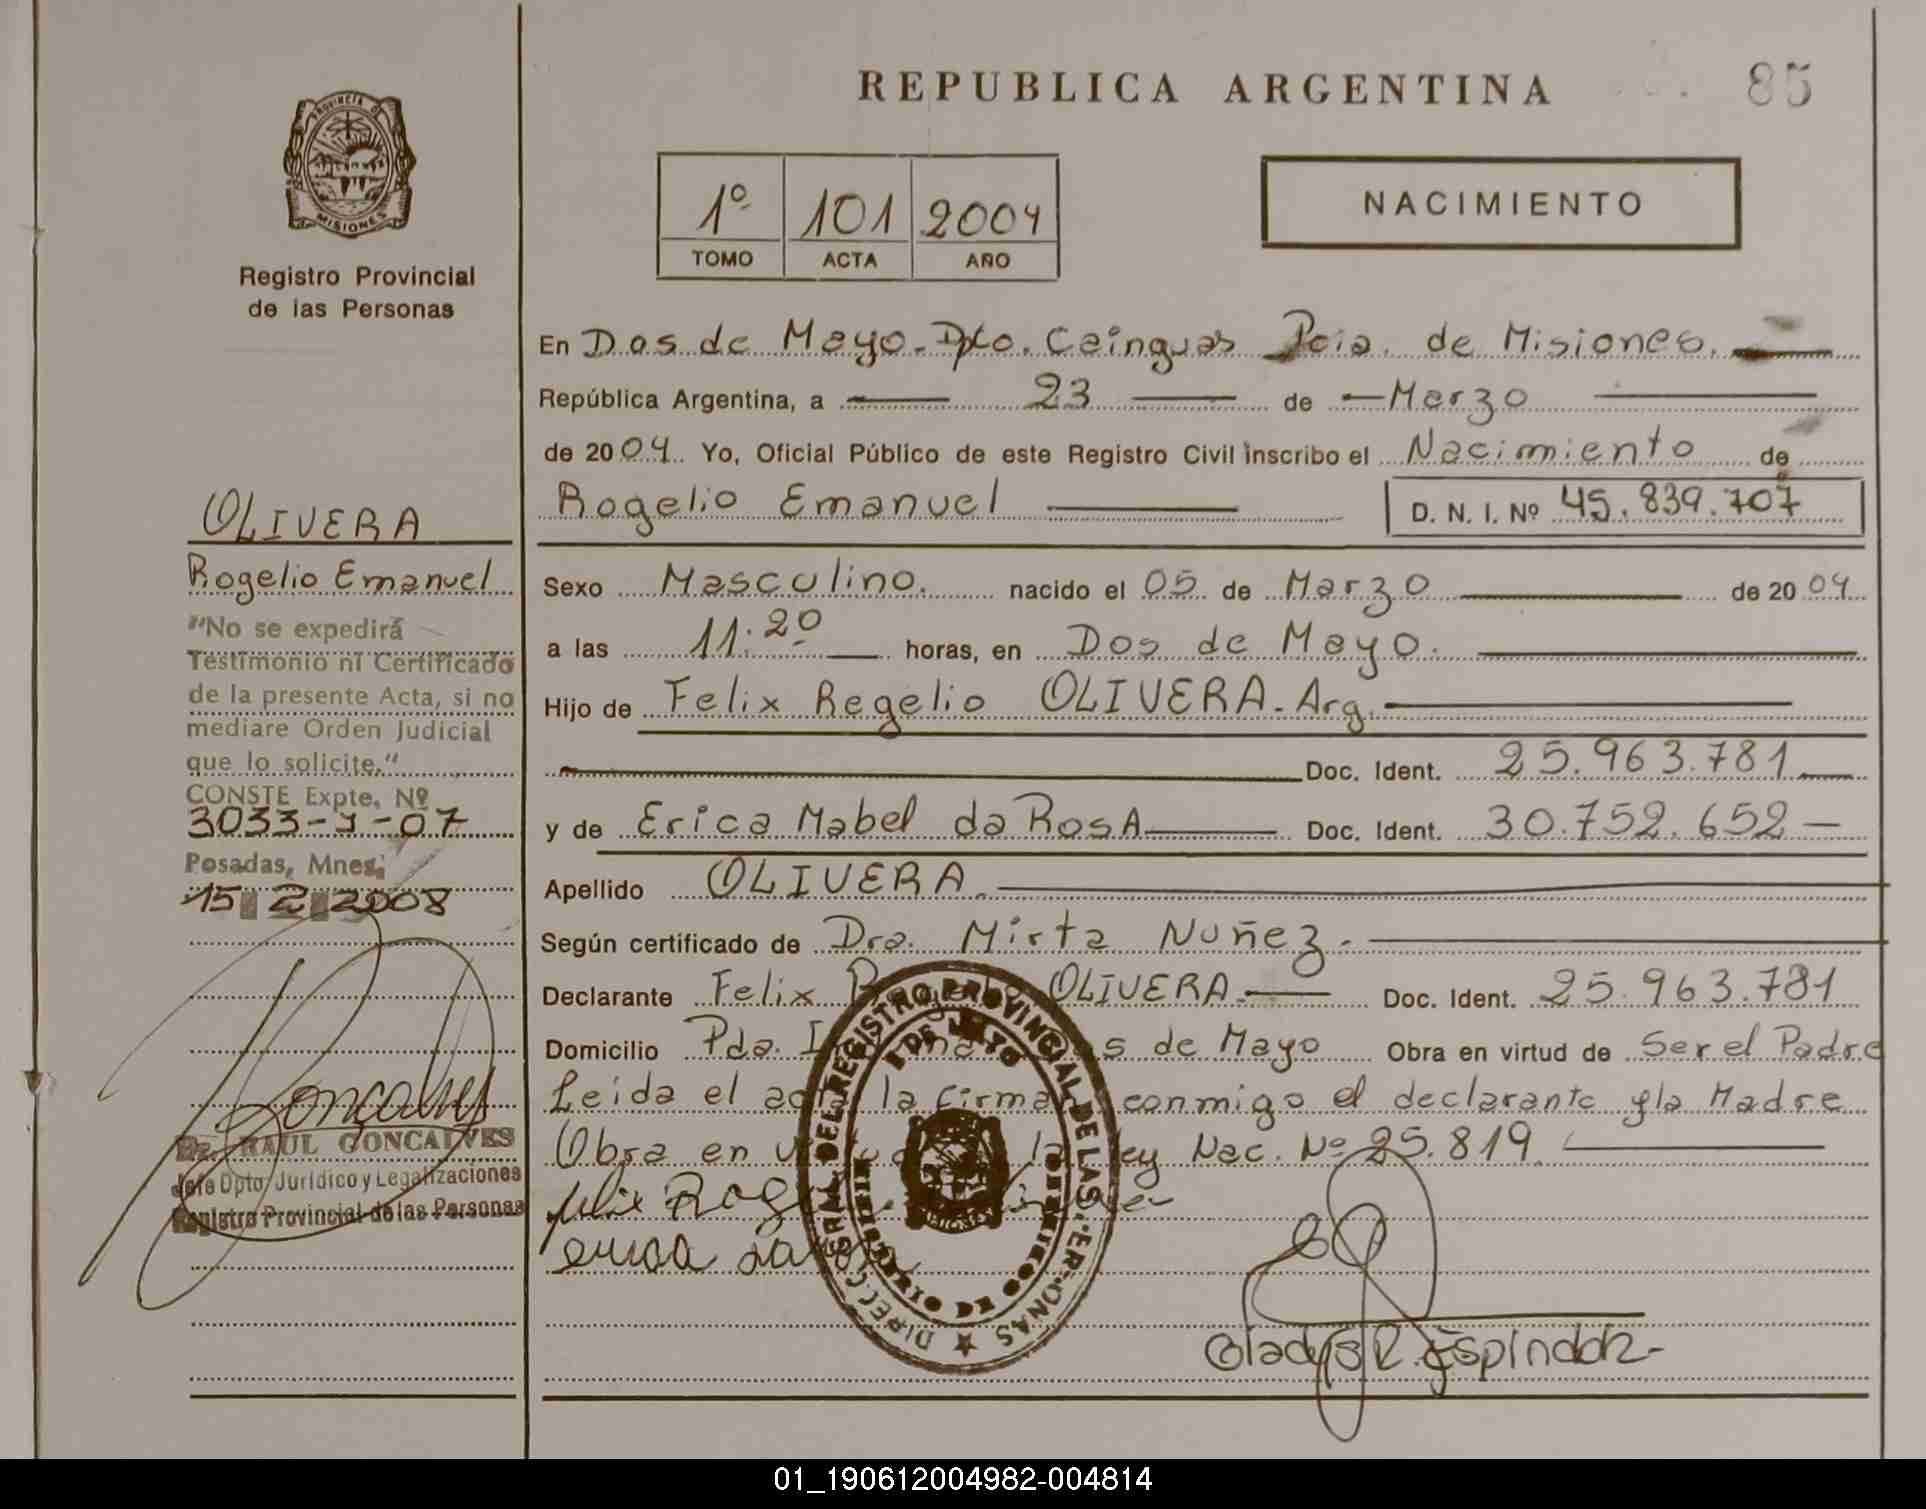 REPUBLICA ARGENTINA
85
PROVINCIA DE MISIONES
Registro Provincial
de las Personas
1º 101 2004
TOMO ACTA AÑO
NACIMIENTO
En Dos de Mayo. Dpto. Cainguas Pcia. de Misiones.
República Argentina, a 23 de Marzo
de 2004. Yo, Oficial Público de este Registro Civil inscribo el Nacimiento de
Rogelio Emanuel D. N. I. Nº 45.839.707
Sexo Masculino. nacido el 05 de Marzo de 2004
a las 11.20 horas, en Dos de Mayo.
Hijo de Felix Regelio OLIVERA. Arg.
Doc. Ident. 25.963.781
y de Erica Mabel da RosA Doc. Ident. 30.752.652
Apellido OLIVERA.
Según certificado de Dra. Mirta Nuñez.
Declarante Felix OLIVERA. Doc. Ident. 25.963.781
Domicilio Pda. de Mayo Obra en virtud de Ser el Padre
Leida el acta la firman conmigo el declarante y la Madre
Obra en ley Nac. Nº 25.819.
Felix
erica
Gladys R. Espindola
DIRECC. GRAL. DEL REGISTRO PROVINCIAL DE LAS PERSONAS
2 DE MAYO
MISIONES
OLIVERA
Rogelio Emanuel
"No se expedirá
Testimonio ni Certificado
de la presente Acta, si no
mediare Orden Judicial
que lo solicite."
CONSTE Expte. Nº
3033-J-07
Posadas, Mnes.
15 2 2008
Dr. RAUL GONCALVES
Jefe Dpto. Jurídico y Legalizaciones
Registro Provincial de las Personas
01_190612004982-004814